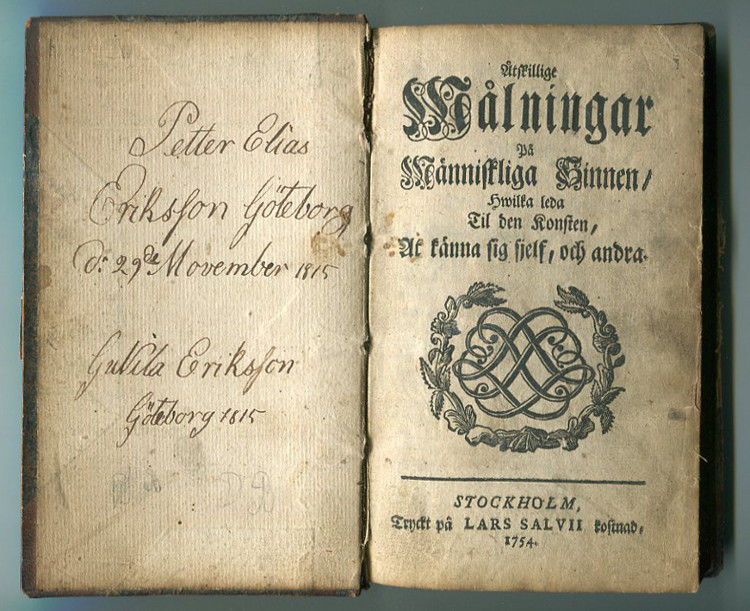 Petter Elias
Eriksson Göteborg
d: 29de November 1815
Eriksson
Göteborg 1815
Åtskillige
Målningar
På
Människliga Sinnen/
Hwilka leda
Til den Konsten,
At känna sig sjelf, och andra.
STOCKHOLM,
Tryckt på LARS SALVII kostnad,
1754.